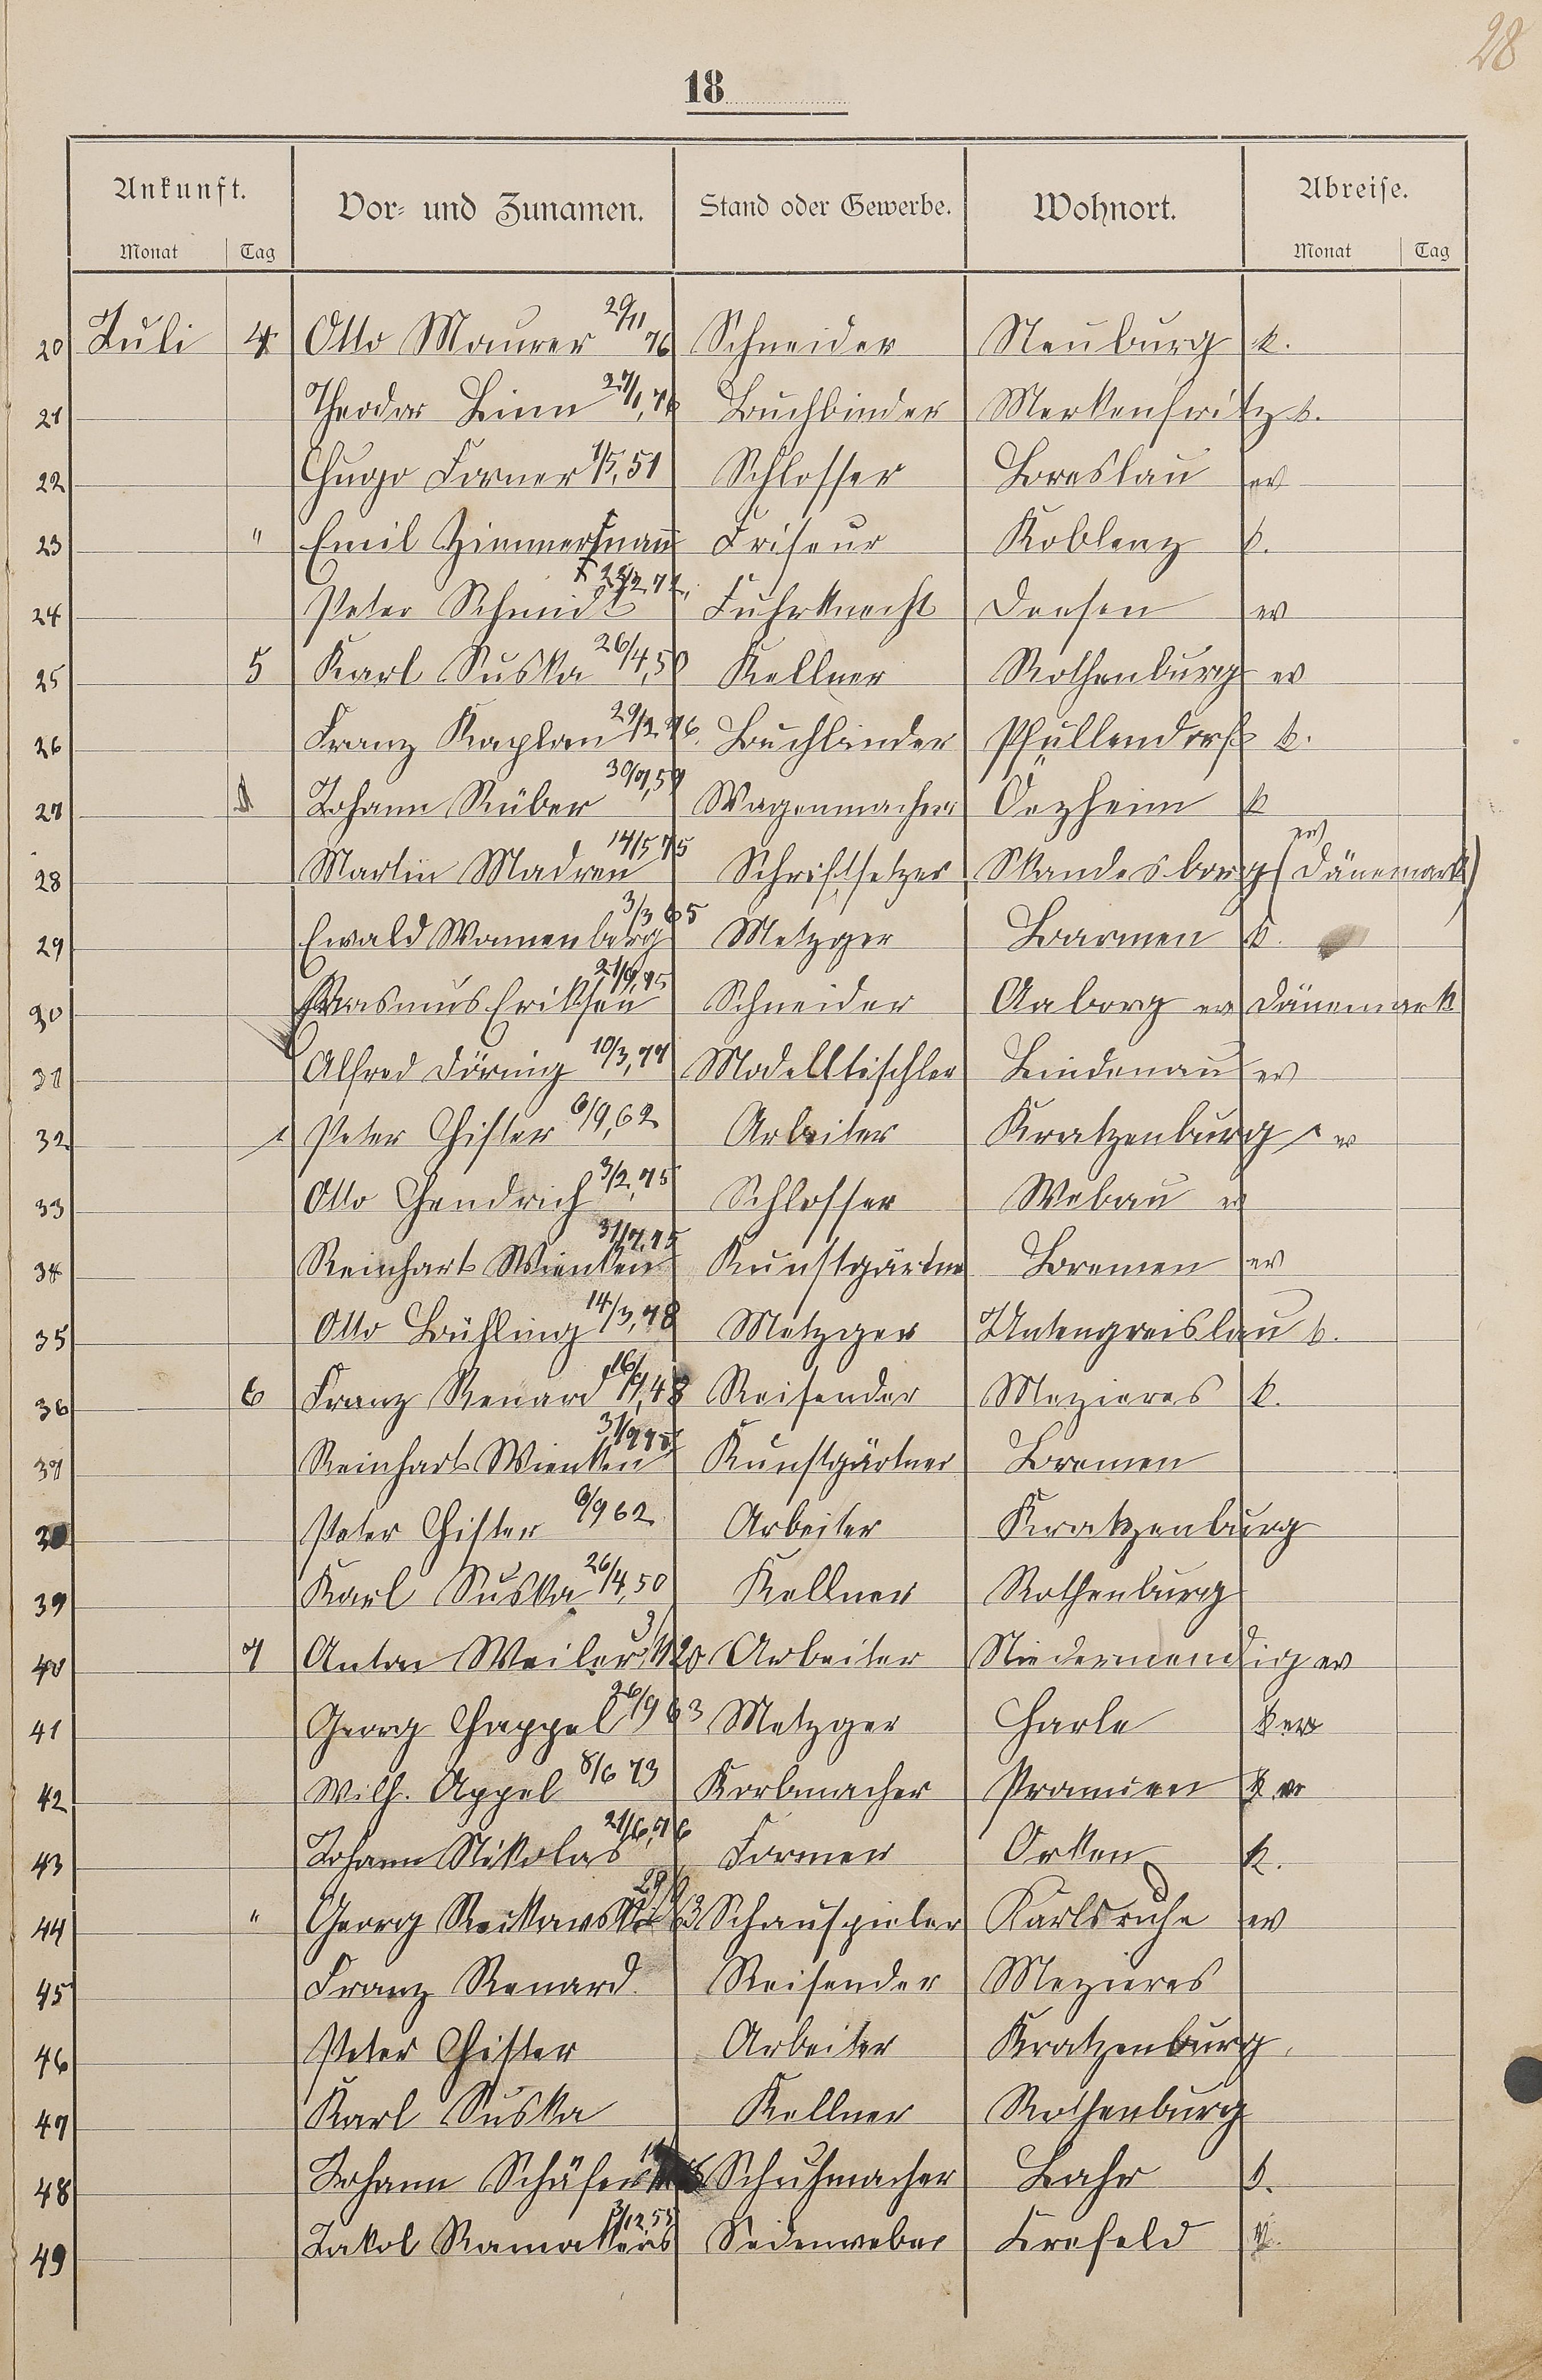 28
18
Ankunft. Vor- und Zunamen. Stand oder Gewerbe. Wohnort. Abreise.
Monat Tag Monat Tag
20 Juli 4 Otto Maurer 29/11 76 Schneider Neuburg k.
21 Theodor Linn 27/1, 76 Buchbinder Merkenfritz k.
22 Hugo Forner 1/5, 51 Schlosser Breslau ev
23 " Emil Zimmermann Friseur Koblenz k.
24 Peter Schmidt 22/2, 72. Fuhrknecht Deesen ev
25 5 Karl Suska 26/4, 50 Kellner Rothenburg ev
26 Franz Kaplan 29/2 76. Buchbinder Pfullendorf k.
27 Johann Rüber 30/7, 59 Wagenmacher Oezheim k
28 Martin Madren 14/5 75 Schriftsetzer Skandesborg (Dänemark) ev
29 Ewald Wonnenberg 3/3 65 Metzger Barmen k.
30 Rasmus Eriksen 21/9, 75 Schneider Aaborg ev Dänemark
31 Alfred Döring 10/3, 77 Modelltischler Lindenau ev
32 Peter Hister 6/9, 62 Arbeiter Kratzenburg ev
33 Otto Hendrich 3/2, 75 Schlosser Webau ev
34 Reinhart Wienken 31/7, 75 Kunstgärtner Bremen ev
35 Otto Bühling 14/3, 78 Metzger Untergreislau k.
36 6 Franz Renard 16/7, 48 Reisender Mezieres k.
37 Reinhart Wienken 31/7 75 Kunstgärtner Bremen
38 Peter Hister 6/9 62 Arbeiter Kratzenburg
39 Karl Suska 26/4, 50 Kellner Rothenburg
40 7 Anton Weiler Arbeiter Niedermendig ev
41 Georg Happel 26/9 63 Metzger Harle k ev
42 Wilh. Appel 8/6 73 Korbmacher ev
43 Johann Nikolas 21/6, 76 Former Orken k.
44 " Georg Schauspieler Karlsruhe ev
45 Franz Renard Reisender Mezieres
46 Peter Hister Arbeiter Kratzenburg
47 Karl Suska Kellner Rothenburg
48 Johann Schäfer Schuhmacher Lahr k.
49 Jakob Ramakers 3/12, 55 Seidenweber Krefeld k.